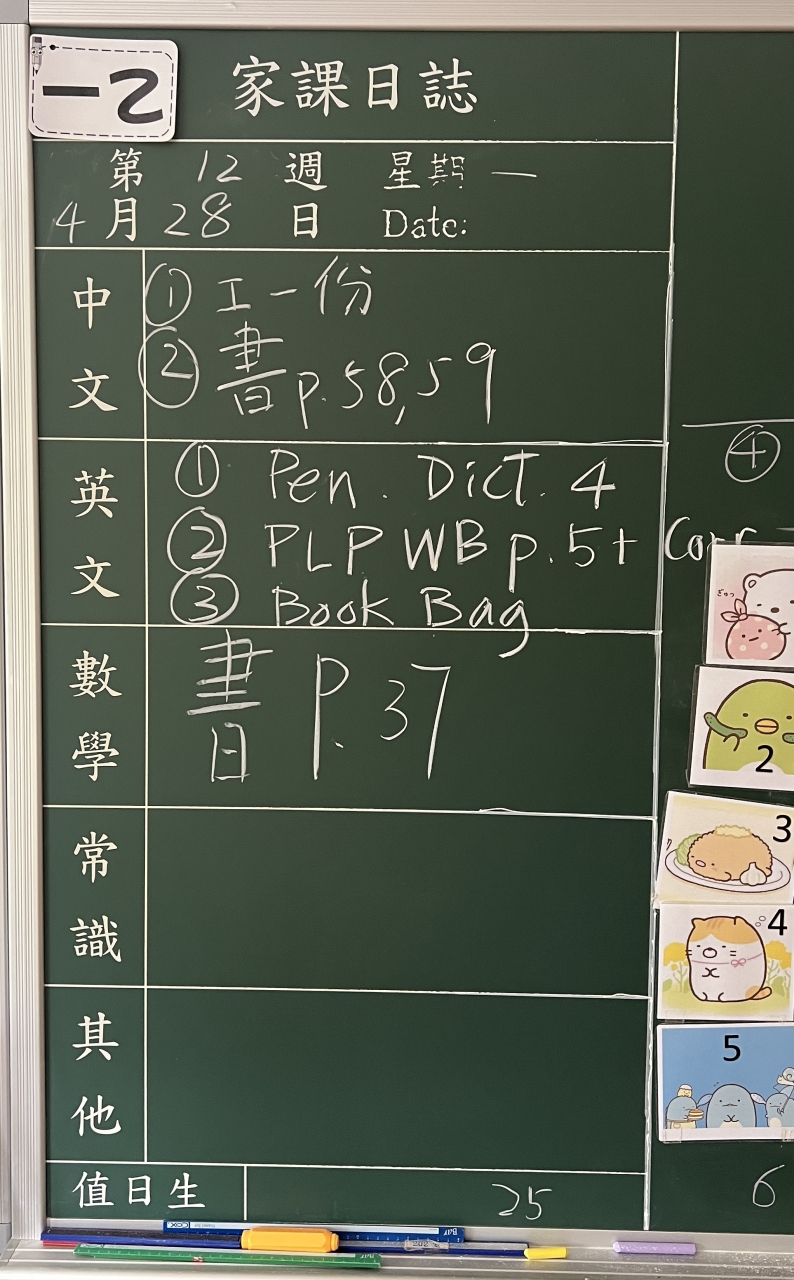 一乙
家課日誌
第 12 週 星期一
4月28日 Date:
中文
① 工一份
② 書p.58,59
英文
① Pen. Dict. 4
② PLP WB p.5 + Corr
③ Book Bag
數學
書 p.37
常識
其他
值日生 25
④
2
3
4
5
6